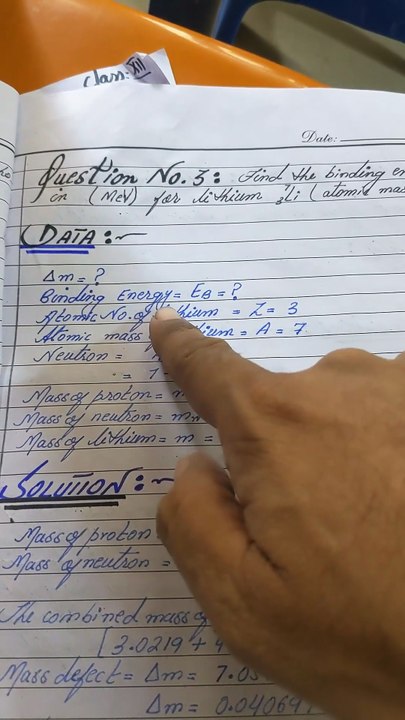 Class: XII
Date:
Question No. 3: Find the binding en
in (MeV) for lithium ⁷₃Li (atomic mas
DATA:~
Δm = ?
Binding Energy = E_B = ?
Atomic No. of lithium = Z = 3
Atomic mass lithium = A = 7
Neutron =
= 7
Mass of proton = m
Mass of neutron = m
Mass of lithium = m =
SOLUTION:~
Mass of proton
Mass of neutron =
The combined mass of
[3.0219 +
Mass defect = Δm = 7.05
Δm = 0.04069